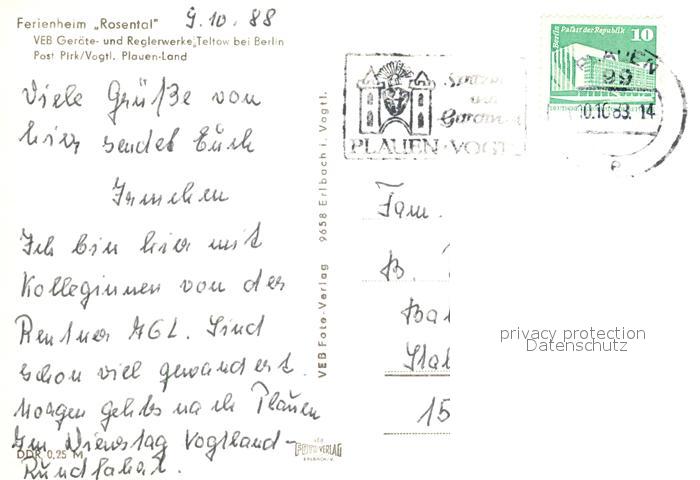 Ferienheim „Rosental"
9.10.88
VEB Geräte- und Reglerwerke „Teltow bei Berlin
Post Pirk/Vogtl. Plauen-Land
Viele Grüße von
hier sendet Euch
Ich bin hier mit
Kolleginnen von der
Rentner AGL. Sind
schon viel gewandert.
Morgen gehts nach Plauen
Im Dienstag Vogtland-
Rundfahrt.
DDR 0,25 M
VEB Foto-Verlag 9658 Erlbach i. Vogtl.
VEB
FOTO VERLAG
ERLBACH/V.
Berlin Palast der Republik
10
DDR
PLAUEN
99
10.10.83. 14
e
PLAUEN · VOGTL
Fam.
B.
15
privacy protection
Datenschutz